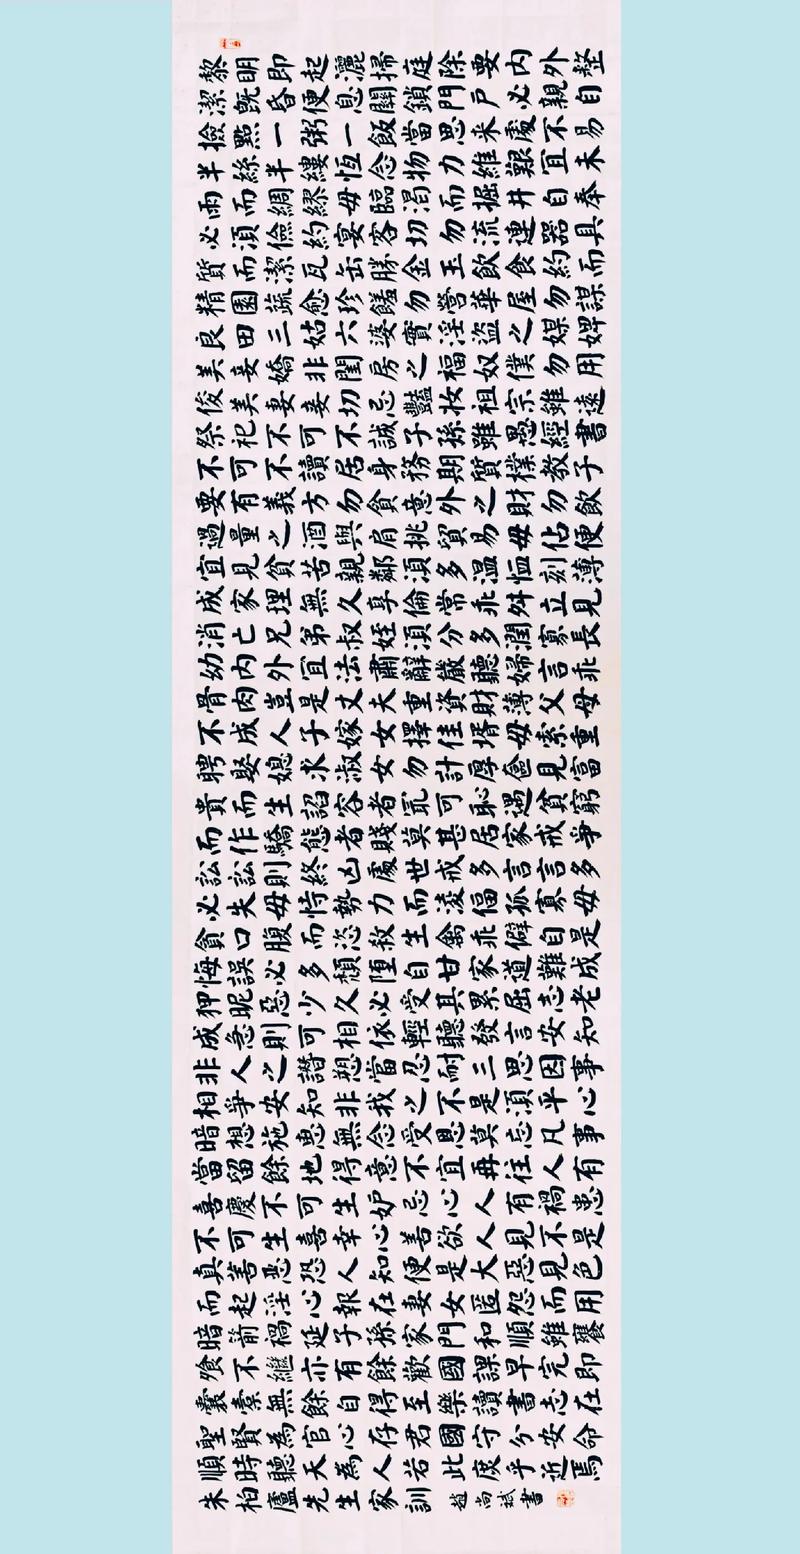 黎明即起灑掃庭除要內外整
潔既昏便息關鎖門戶必親自
撿點一粥一飯當思來處不易
半絲半縷恆念物力維艱宜未
雨而綢繆毋臨渴而掘井自奉
必須儉約宴客切勿流連器具
質而潔瓦缶勝金玉飲食約而
精園蔬愈珍饈勿營華屋勿謀
良田三姑六婆實淫盜之媒婢
美妾嬌非閨房之福奴僕勿用
俊美妻妾切忌艷妝祖宗雖遠
祭祀不可不誠子孫雖愚經書
不可不讀居身務期質樸教子
要有義方勿貪意外之財勿飲
過量之酒與肩挑貿易毋佔便
宜見貧苦親鄰須多溫恤刻薄
成家理無久享倫常乖舛立見
消亡兄弟叔姪須分多潤寡長
幼內外宜法肅辭嚴聽婦言乖
骨肉豈是丈夫重資財薄父母
不成人子嫁女擇佳壻毋索重
聘娶媳求淑女勿計厚奩見富
貴而生諂容者冣可恥遇貧窮
而作驕態者賤莫甚居家戒爭
訟訟則終凶處世戒多言言多
必失毋恃勢力而淩偪孤寡毋
貪口腹而恣殺生禽乖僻自是
悔誤必多頹惰自甘家道難成
狎昵惡少久必受其累屈志老
成急則可相依輕聽發言安知
非人之譖愬當忍耐三思因事
相爭安知非我之不是須平心
暗想施惠無念受恩莫忘凡事
當留餘地得意不宜再往人有
喜慶不可生妒忌心人有禍患
不可生喜幸心善欲人見不是
真善惡恐人知便是大惡見色
而起淫心報在妻女匿怨而用
暗箭禍延子孫家門和順雖饔
飧不繼亦有餘歡國課早完即
囊橐無餘自得至樂讀書志在
聖賢為官心存君國守分安命
順時聽天為人若此度乎近焉
朱柏廬先生家訓 趙尚斌書